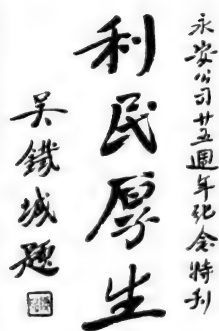 永安公司廿五週年紀念特刊
利民厚生
吳鐵城題